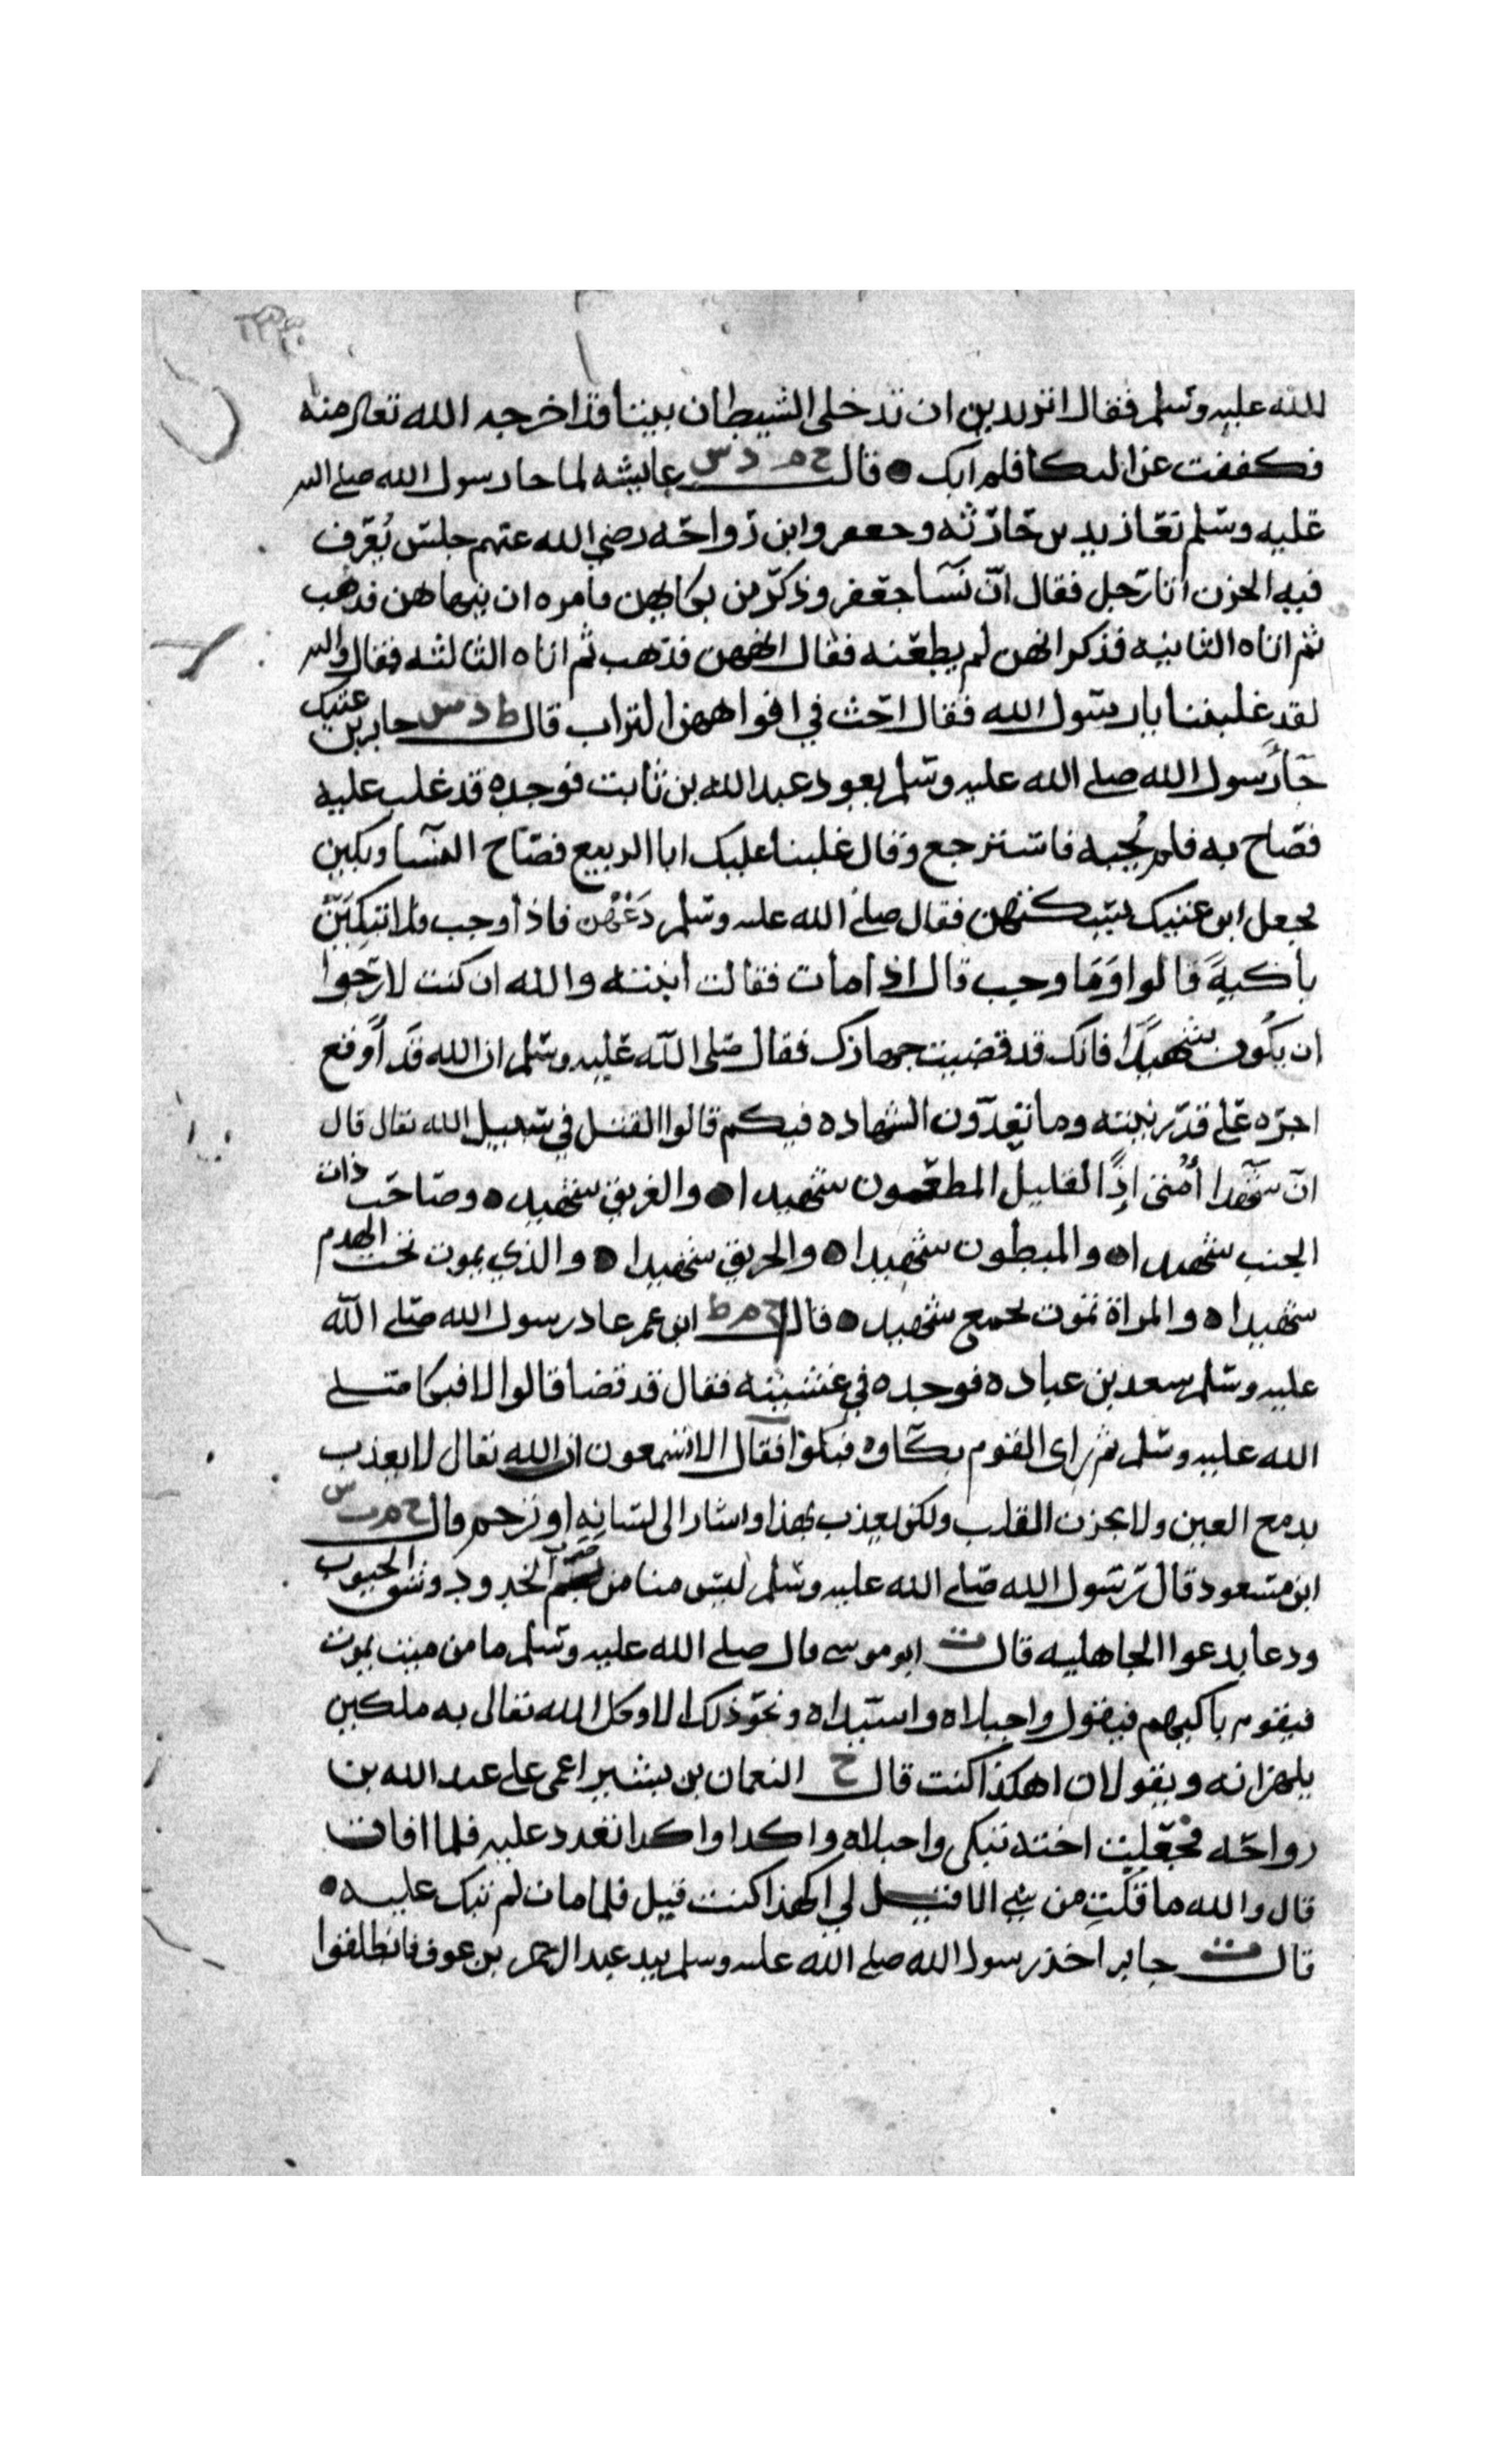 الله عليه وسلم فقال اتريدين ان تدخلي الشيطان بيتا قد اخرجه الله تعالى منه
فكففت عن البكا فلم ابك ● قال خ م د س عايشه لما جا رسول الله صلى الله
عليه وسلم نعا زيد بن حارثه وجعفر وابن رواحه رضي الله عنهم جلس يعرف
فيه الحزن اتا رجل فقال ان نسا جعفر وذكر من بكايهن فامره ان ينهاهن فذهب
ثم اتاه الثانيه فذكر انهن لم يطعنه فقال انههن فذهب ثم اتاه الثالثه فقال والله
لقد غلبننا يا رسول الله فقال احث في افواههن التراب قال ط د س جابر بن عتيك
جا رسول الله صلى الله عليه وسلم يعود عبد الله بن ثابت فوجده قد غلب عليه
فصاح به فلم يجبه فاسترجع وقال غلبنا عليك ابا الربيع فصاح النسا وبكين
فجعل ابن عتيك يسكتهن فقال صلى الله عليه وسلم دعهن فاذا وجب فلا تبكين
باكية قالوا وما وجب قال اذا مات فقالت ابنته والله ان كنت لارجوا
ان يكون شهيدا فانك قد قضيت جهازك فقال صلى الله عليه وسلم ان الله قد اوقع
اجره على قدر نيته وما تعدون الشهاده فيكم قالوا القتل في سبيل الله تعالى قال
ان شهدا امتي اذا لقليل المطعون شهيد اه والغريق شهيد ه وصاحب ذات
الجنب شهيد اه والمبطون شهيد اه والحريق شهيد اه والذي يموت تحت الهدم
شهيد اه والمراة تموت بجمع شهيد ه قال خ م ط ابن عمر عاد رسول الله صلى الله
عليه وسلم سعد بن عباده فوجده في غشيته فقال قد قضا قالوا لا فبكا صلى
الله عليه وسلم ثم راى القوم بكاوه فبكوا فقال الا تسمعون ان الله تعالى لا يعذب
بدمع العين ولا بحزن القلب ولكن يعذب بهذا واشار الى لسانه او يرحم قال خ م ت س
ابن مسعود قال رسول الله صلى الله عليه وسلم ليس منا من ضرب الخدود وشق الجيوب
ودعا بدعوا الجاهليه قال ت ابو موسى قال صلى الله عليه وسلم ما من ميت يموت
فيقوم باكيهم فيقول واجبلاه واسيداه ونحو ذلك الا وكل الله تعالى به ملكين
يلهزانه ويقولان اهكذا كنت قال خ النعمان بن بشير اغمى على عبد الله بن
رواحه فجعلت اخته تبكى واجبلاه واكذا واكذا تعدد عليه فلما افاق
قال والله ما قلت من شي الا قيل لي اكهذا كنت قيل فلما مات لم تبك عليه ●
قال ت جابر اخذ رسول الله صلى الله عليه وسلم بيد عبد الرحمن بن عوف فانطلقوا